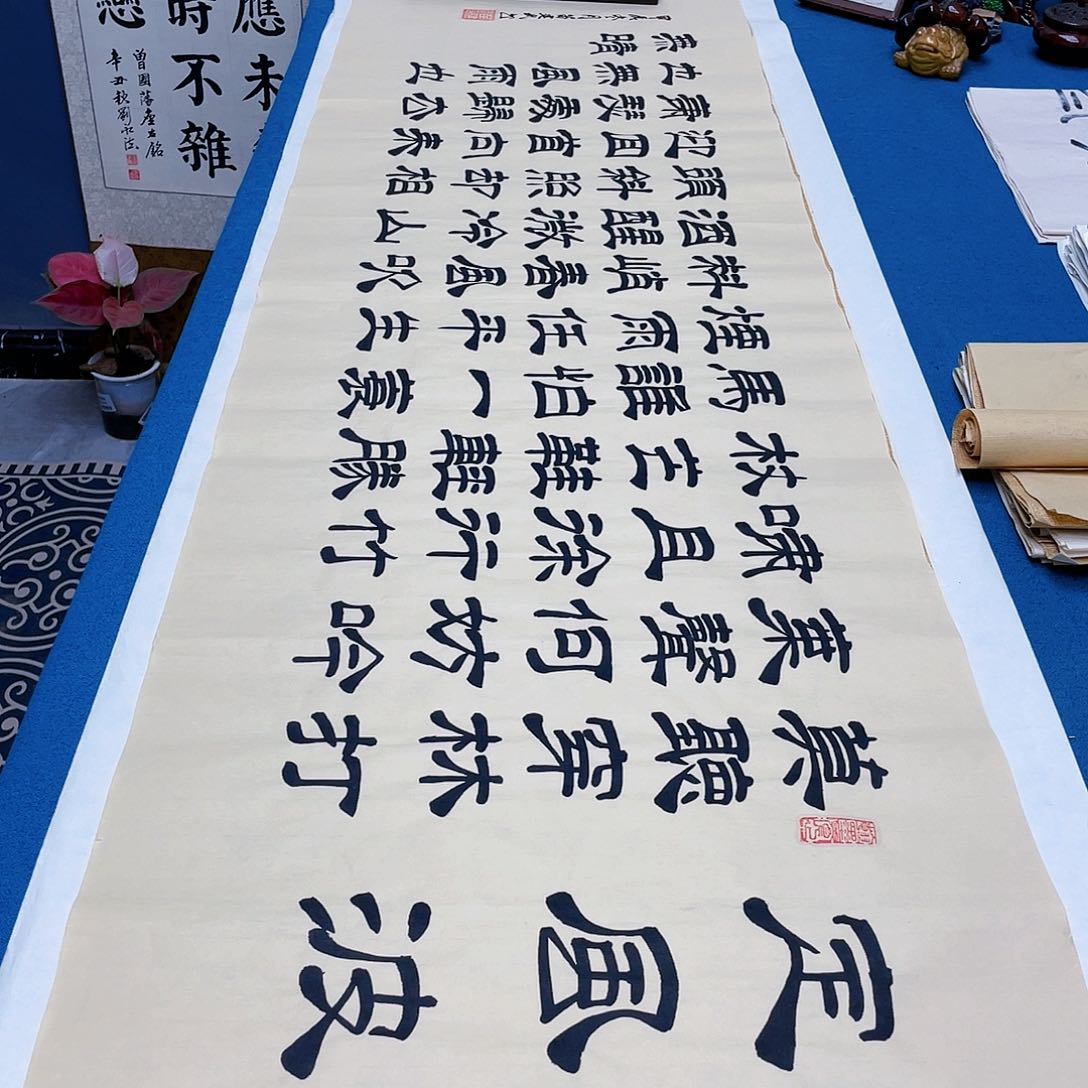 定風波
莫聽穿林打
葉聲何妨吟
嘯且徐行竹
杖芒鞋輕勝
馬誰怕一蓑
煙雨任平生
料峭春風吹
酒醒微冷山
頭斜照卻相
迎回首向來
蕭瑟處歸去
也無風雨也
無晴
應未
時不雜
戀
曾國藩座右銘
辛丑秋劉